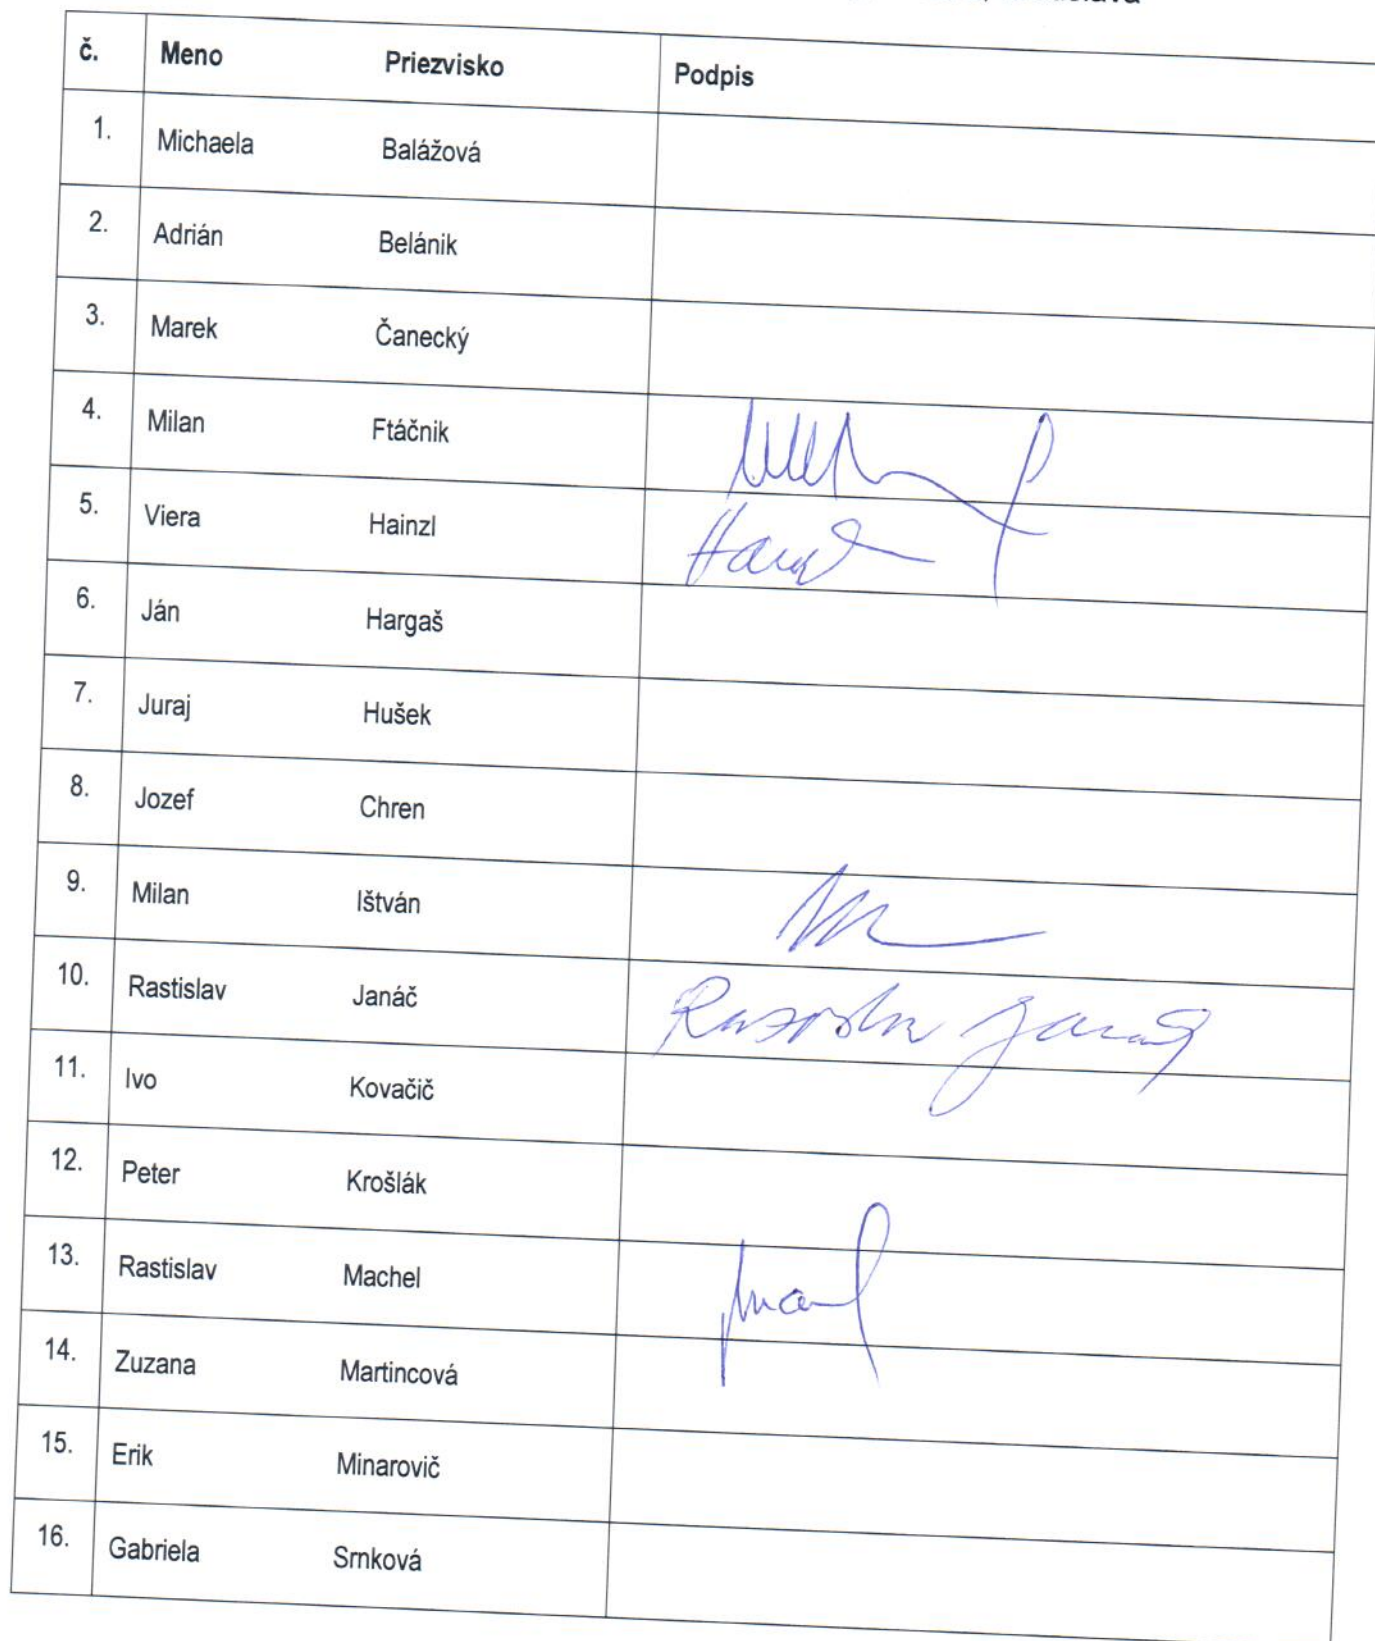 č. Meno Priezvisko Podpis
1. Michaela Balážová
2. Adrián Belánik
3. Marek Čanecký
4. Milan Ftáčnik
5. Viera Hainzl
6. Ján Hargaš
7. Juraj Hušek
8. Jozef Chren
9. Milan Ištván
10. Rastislav Janáč
11. Ivo Kovačič
12. Peter Krošlák
13. Rastislav Machel
14. Zuzana Martincová
15. Erik Minarovič
16. Gabriela Srnková